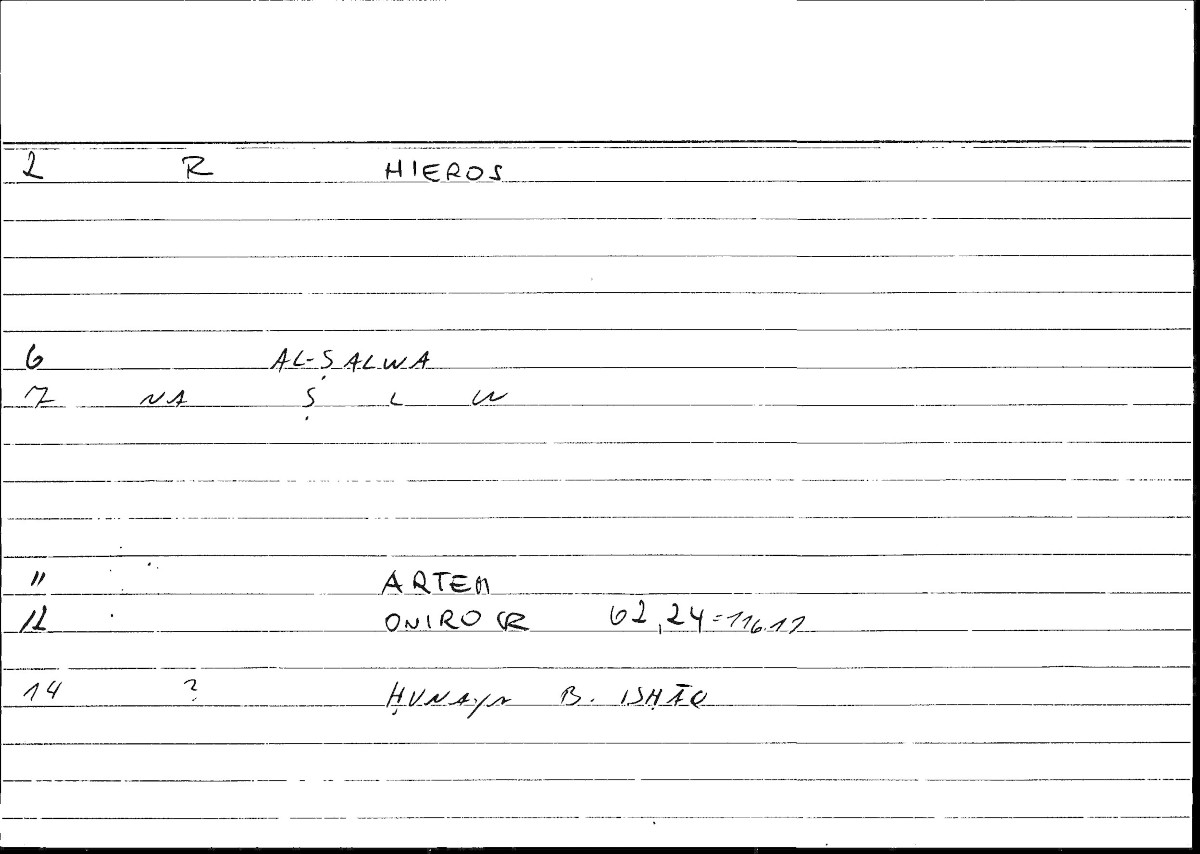 2 R HIEROS
6 AL-ṢALWA
7 NA Ṣ L W
11 ARTEM
12 ONIROCR 62,24=116.11
14 ? ḤUNAYN B. ISḤĀQ